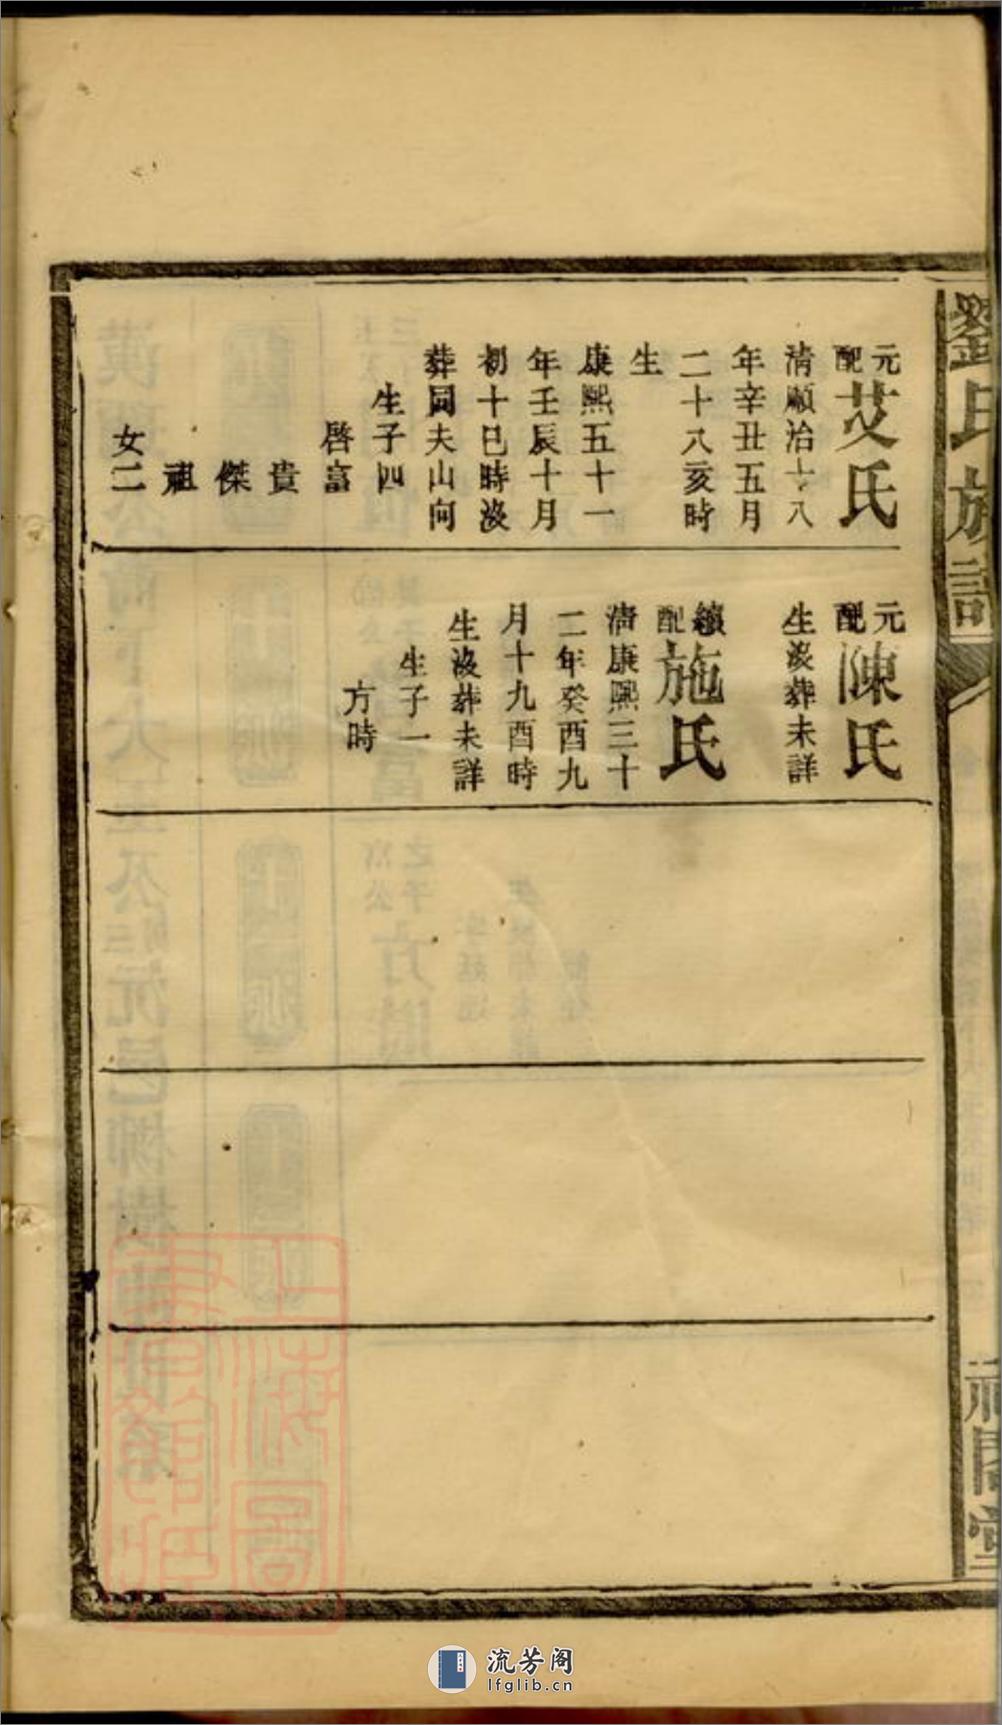 劉氏族譜
元配艾氏
清順治十八
年辛丑五月
二十八亥時
生
康熙五十一
年壬辰十月
初十巳時没
葬同夫山向
生子四
啓富
貴
傑
祖
女二
元配陳氏
生没葬未詳
繼配施氏
清康熙三十
二年癸酉九
月十九酉時
生没葬未詳
生子一
方時
上海圖書館藏
流芳阁
lfglib.cn